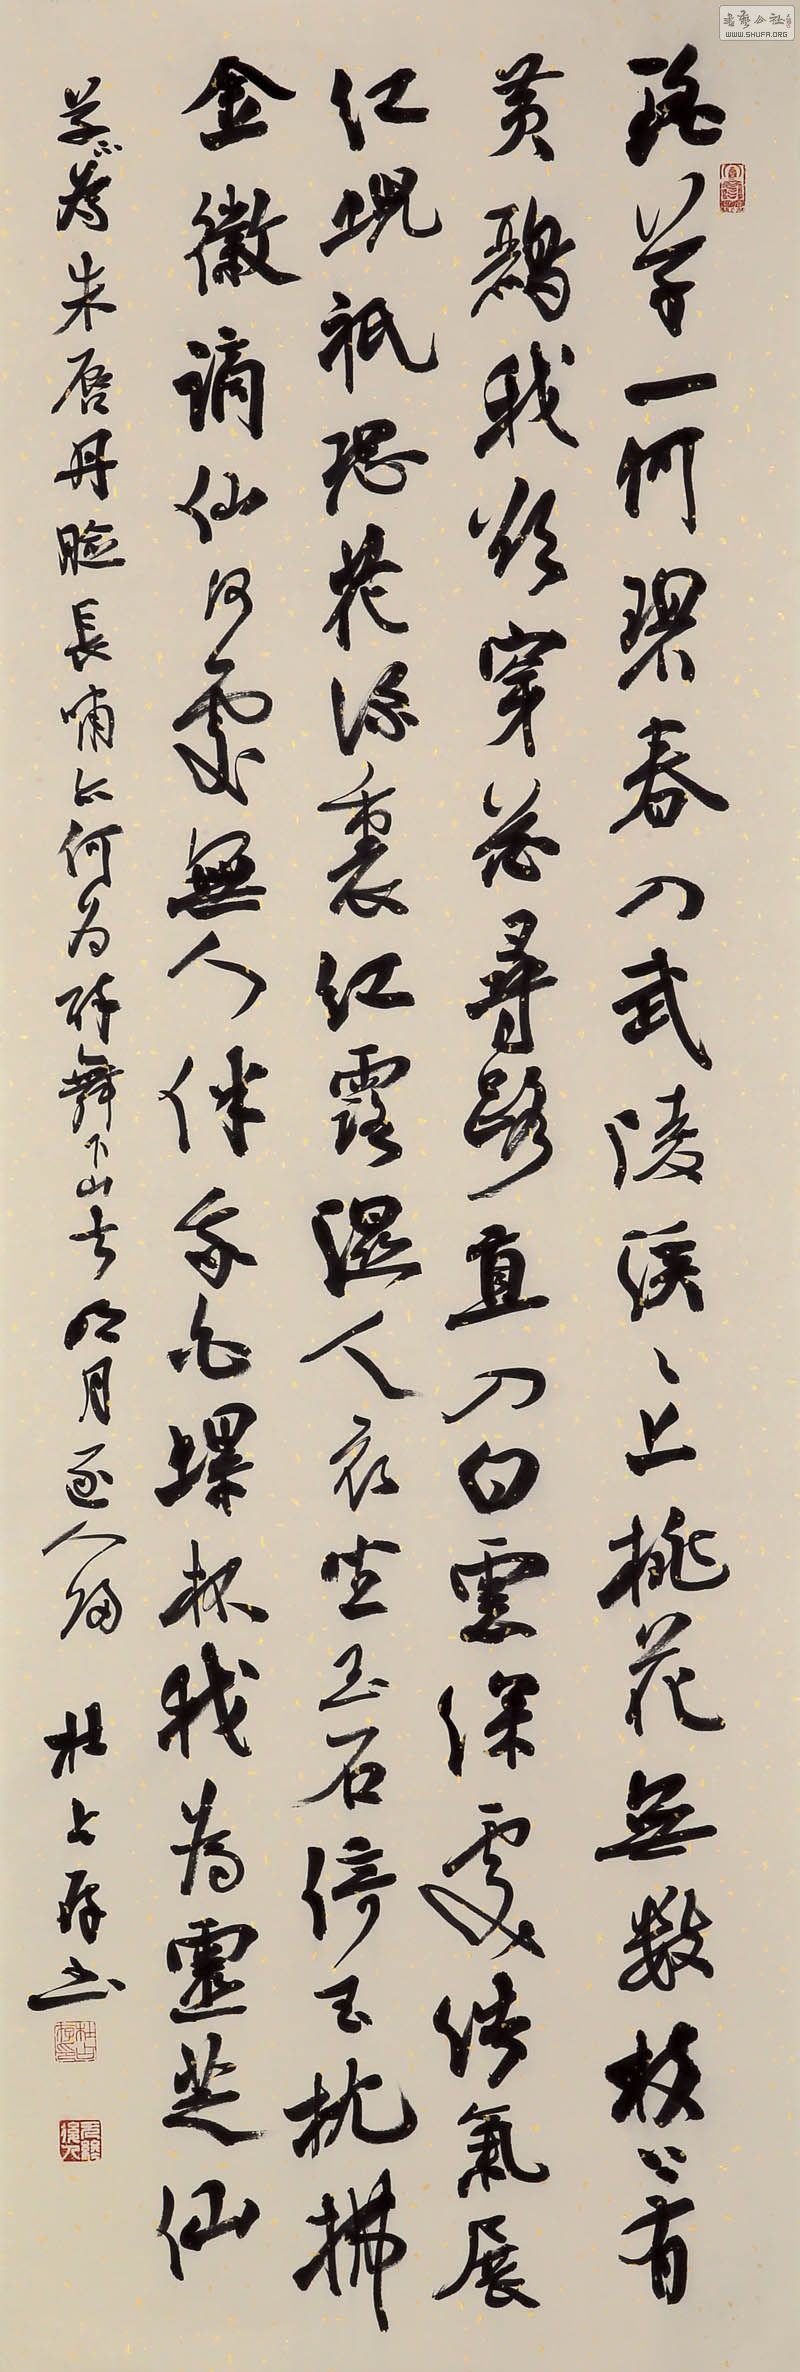 瑶草一何碧春入武陵溪〻上桃花無数枝〻有
黄鸝我欲穿花尋路直入白雲深處浩氣展
紅蜺祇恐花深裏紅露濕人衣坐玉石倚玉枕拂
金徽謫仙何處無人伴我白螺杯我為靈芝仙
草不為朱唇丹臉長嘯亦何為醉舞下山去明月逐人歸
杜占存书
书艺公社
WWW.SHUFA.ORG